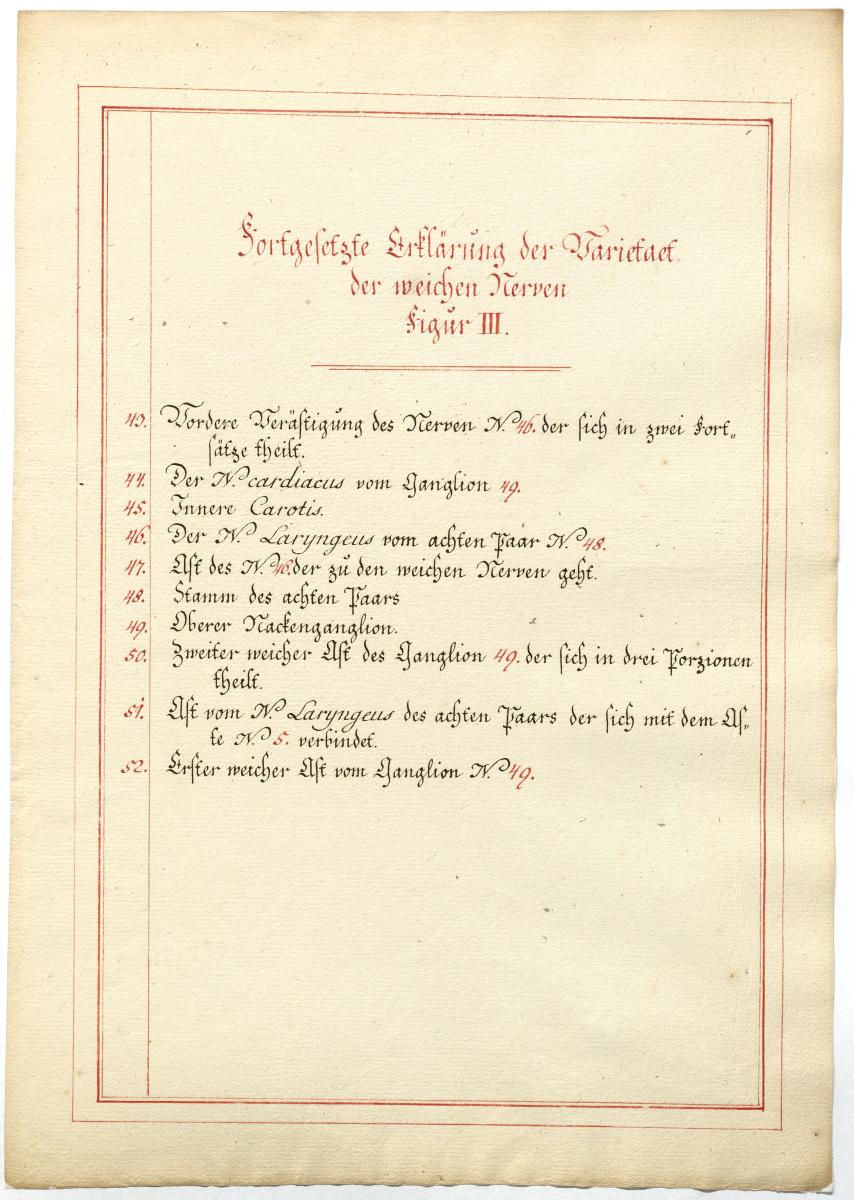 Fortgesetzte Erklärung der Varietaet
der weichen Nerven
Figur III.
43. Vordere Verästigung des Nerven No 46. der sich in zwei Fort„
sätze theilt.
44. Der N. cardiacus vom Ganglion 49.
45. Innere Carotis.
46. Der N. Laryngeus vom achten Paar No 48.
47. Ast des No 46. der zu den weichen Nerven geht.
48. Stamm des achten Paars
49. Oberer Nackenganglion.
50. Zweiter weicher Ast des Ganglion 49. der sich in drei Porzionen
theilt.
51. Ast vom N. Laryngeus des achten Paars der sich mit dem As„
te No 5. verbindet.
52. Erster weicher Ast vom Ganglion No 49.